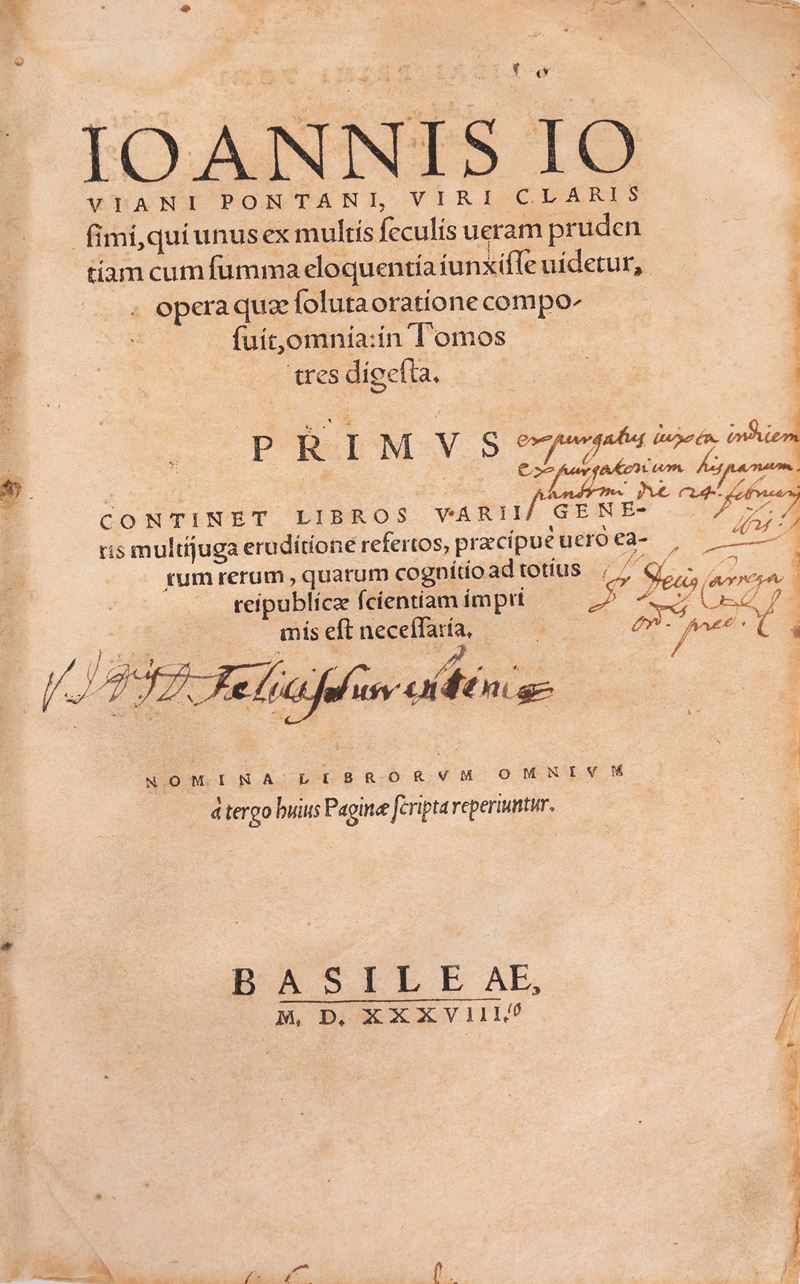 IOANNIS IO
VIANI PONTANI, VIRI CLARIS
ſimi, qui unus ex multis ſeculis ueram pruden
tiam cum ſumma eloquentia iunxiſſe uidetur,
opera quæ ſoluta oratione compo-
ſuit, omnia: in Tomos
tres digeſta.
PRIMVS
expurgatus iuxta indicem
expurgatorium hispanum
panormi die 24. februarij
CONTINET LIBROS VARII GENE-
ris multijuga eruditione refertos, præcipue uero ea-
rum rerum, quarum cognitio ad totius
reipublicæ ſcientiam impri
mis eſt neceſſaria.
fr Decius Carrega
ord. pred.
Felicis Surrentini
NOMINA LIBRORVM OMNIVM
à tergo huius Paginæ ſcripta reperiuntur.
BASILEAE,
M. D. XXXVIII.